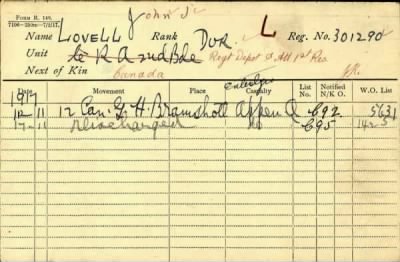 FORM R. 149.
Name LOVELL John J. Rank DVR. L Reg. No. 301290
Unit R A 2nd Bde Regt Depot
Next of Kin Canada
Date Movement Place Casualty List No. Notified N/K O. W.O. List
1917
12-11 12 Can. G. H. Bramshott Appen C92 5631
17-11 Discharged do C95